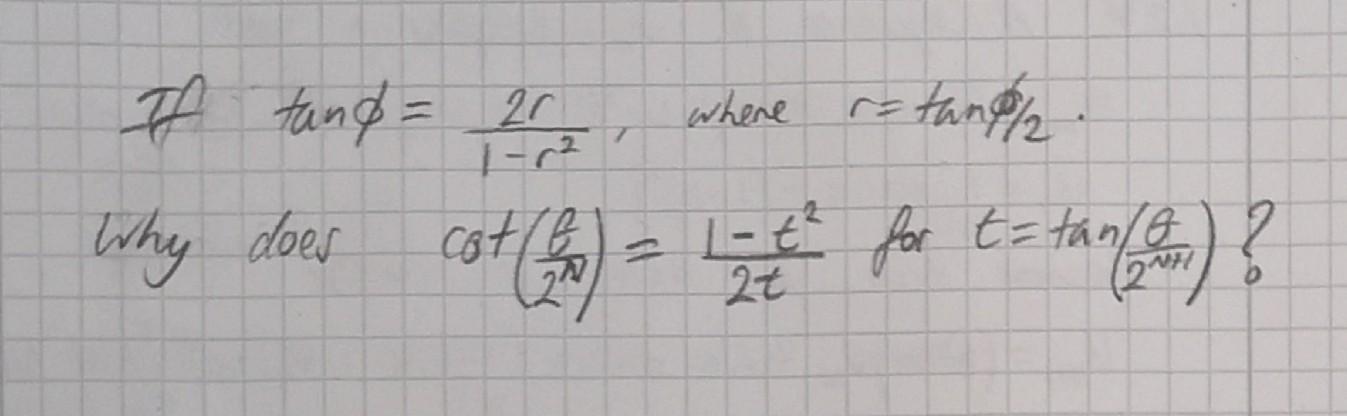 If tanϕ = 2r/(1-r²), where r = tanϕ/2.
Why does cot(θ/2^N) = (1-t²)/2t for t = tan(θ/2^(N+1))?